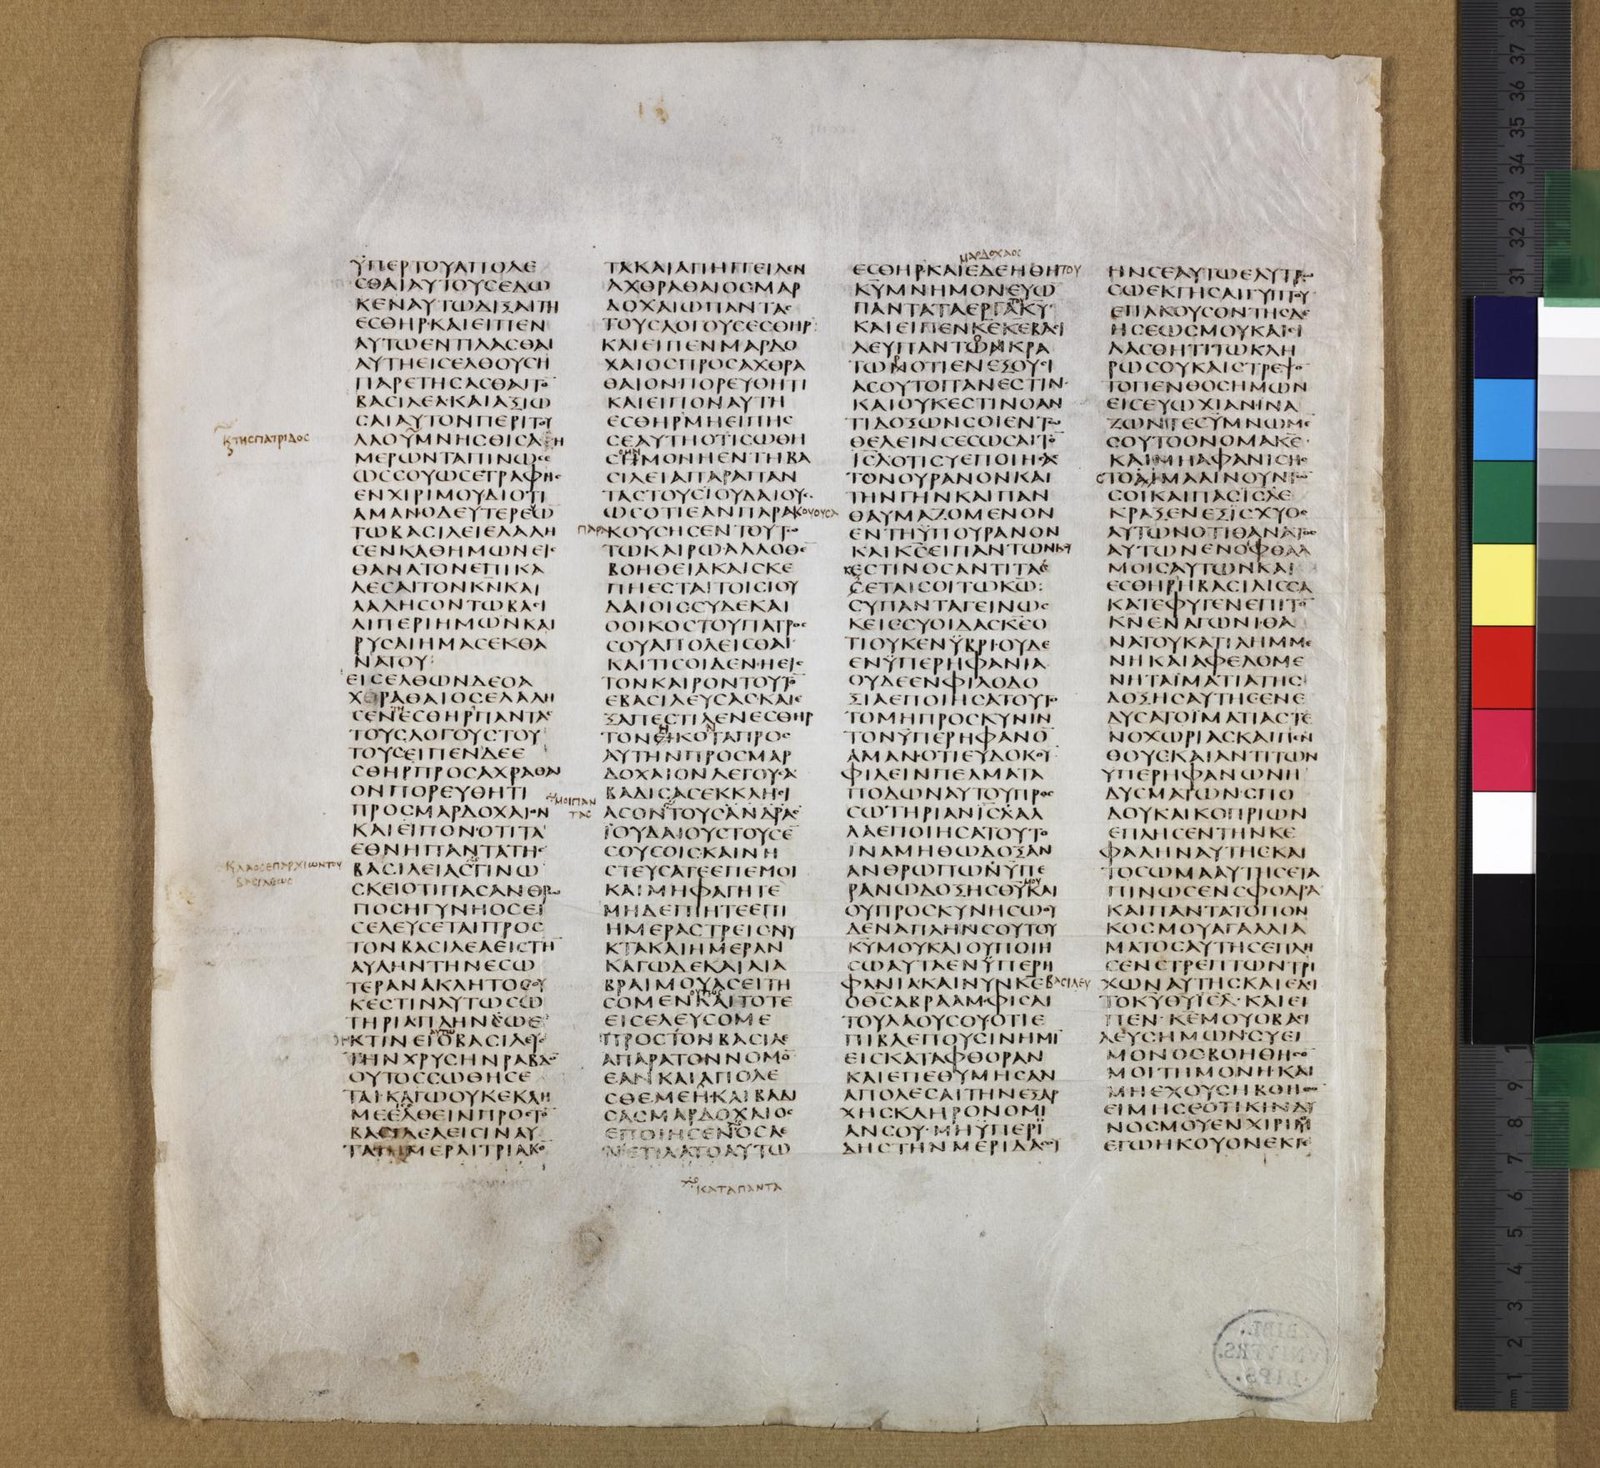 ΫΠΕΡΤΟΥΑΠΟΛΕ
ϹΘΑΙΑΥΤΟΥϹΕΔΩ
ΚΕΝΑΥΤΩΔΙΞΑΙΤΗ
ΕϹΘΗΡ·ΚΑΙΕΙΠΕΝ
ΑΥΤΩΕΝΤΙΛΑϹΘΑΙ
ΑΥΤΗΕΙϹΕΛΘΟΥϹΗ
ΠΑΡΕΤΗϹΑϹΘΑΙΤΟ̅
ΒΑϹΙΛΕΑ·ΚΑΙΑΞΙΩ
ϹΑΙΑΥΤΟΝΠΕΡΙΤΟΥ
ΛΑΟΥΜΝΗϹΘΙϹΑΗ
ΤΗϹΠΑΤΡΙΔΟϹ
ΜΕΡΩΝΤΑΠΙΝΩϹΕ
ΩϹϹΟΥΩϹΕΤΡΑΦΗϹ
ΕΝΧΙΡΙΜΟΥΔΙΟΤΙ
ΑΜΑΝΟΔΕΥΤΕΡΕΥΩ
ΤΩΒΑϹΙΛΕΙΕΛΑΛΗ
ϹΕΝΚΑΘΗΜΩΝΕΙϹ
ΘΑΝΑΤΟΝΕΠΙΚΑ
ΛΕϹΑΙΤΟΝΚ̅Ν̅ΚΑΙ
ΛΑΛΗϹΟΝΤΩΒΑϹΙ
ΛΙΠΕΡΙΗΜΩΝΚΑΙ
ΡΥϹΑΙΗΜΑϹΕΚΘΑ
ΝΑΤΟΥ:
ΕΙϹΕΛΘΩΝΔΕΟΑ
ΧΘΡΑΘΑΙΟϹΕΛΑΛΗ
ϹΕΝΤΗΕϹΘΗΡΠΑΝΤΑϹ
ΤΟΥϹΛΟΓΟΥϹΤΟΥ
ΤΟΥϹΕΙΠΕΝΔΕΕ
ϹΘΗΡΠΡΟϹΑΧΡΑΘΑΙ
ΟΝΠΟΡΕΥΘΗΤΙ
ΠΡΟϹΜΑΡΔΟΧΑΙΟΝ
ΚΑΙΕΙΠΟΝΟΤΙΤΑ
ΕΘΝΗΠΑΝΤΑΤΗϹ
ΒΑϹΙΛΕΙΑϹΓΙΝΩ
ΛΑΟϹΕΠΑΡΧΙΩΝΤΟΥ
ΒΑϹΙΛΕΩϹ
ϹΚΕΙΟΤΙΠΑϹΑΝΘΡΩ
ΠΟϹΗΓΥΝΗΟϹΕΙ
ϹΕΛΕΥϹΕΤΑΙΠΡΟϹ
ΤΟΝΒΑϹΙΛΕΑΕΙϹΤΗ̅
ΑΥΛΗΝΤΗΝΕϹΩ
ΤΕΡΑΝΑΚΛΗΤΟϹΟΥ
ΚΕϹΤΙΝΑΥΤΩϹΩ
ΤΗΡΙΑΠΛΗΝ
ΒΑϹΙΛΕΥϹ
ΤΗΝΧΡΥϹΗΝΡΑΒΔΟ̅
ΟΥΤΟϹϹΩΘΗϹΕ
ΤΑΙ·ΚΑΓΩΟΥΚΕΚΛΗ
ΜΕΕΛΘΕΙΝΠΡΟϹΤΟ̅
ΒΑϹΙΛΕΑΕΙϹΙΝΑΥ
ΤΑΙΗΜΕΡΑΙΤΡΙΑΚΟ̅
ΤΑΚΑΙΑΠΗΓΓΕΙΛΕΝ
ΑΧΘΡΑΘΑΙΟϹΜΑΡ
ΔΟΧΑΙΩΠΑΝΤΑϹ
ΤΟΥϹΛΟΓΟΥϹΕϹΘΗΡ:
ΚΑΙΕΙΠΕΝΜΑΡΔΟ
ΧΑΙΟϹΠΡΟϹΑΧΘΡΑ
ΘΑΙΟΝΠΟΡΕΥΘΗΤΙ
ΚΑΙΕΙΠΟΝΑΥΤΗ
ΕϹΘΗΡΜΗΕΙΠΗϹ
ϹΕΑΥΤΗΟΤΙϹΩΘΗ
ϹΗΜΟΝΗΕΝΤΗΒΑ
ϹΙΛΕΙΑΠΑΡΑΠΑΝ
ΤΑϹΤΟΥϹΙΟΥΔΑΙΟΥϹ
ΩϹΟΤΙΕΑΝΠΑΡΑΚΟΥΟΥϹΑ
ΠΑΡΑΚΟΥϹΗϹΕΝΤΟΥΤΩ
ΤΩΚΑΙΡΩ·ΑΛΛΟΘΕ̅
ΒΟΗΘΕΙΑΚΑΙϹΚΕ
ΠΗΕϹΤΑΙΤΟΙϹΙΟΥ
ΔΑΙΟΙϹϹΥΔΕΚΑΙ
ΟΟΙΚΟϹΤΟΥΠΑΤΡΟϹ
ϹΟΥΑΠΟΛΕΙϹΘΑΙ
ΚΑΙΤΙϹΟΙΔΕΝΗΕΙϹ
ΤΟΝΚΑΙΡΟΝΤΟΥΤΟ̅
ΕΒΑϹΙΛΕΥϹΑϹΚΑΙΕ
ΞΑΠΕϹΤΙΛΕΝΕϹΘΗΡ
ΤΟΝΗΚΟΤΑΠΡΟϹ
ΑΥΤΗΝΠΡΟϹΜΑΡ
ΔΟΧΑΙΟΝΛΕΓΟΥϹΑ
ΒΑΔΙϹΑϹΕΚΚΛΗϹΙ
ΑϹΟΝΤΟΥϹΑΝΔΡΑϹ
ΪΟΥΔΑΙΟΥϹΤΟΥϹΕ
ϹΟΥϹΟΙϹΚΑΙΝΗ
ϹΤΕΥϹΑΤΕΕΠΕΜΟΙ
ΚΑΙΜΗΦΑΓΗΤΕ
ΜΗΔΕΠΙΗΤΕΕΠΙ
ΗΜΕΡΑϹΤΡΕΙϹΝΥ
ΚΤΑΚΑΙΗΜΕΡΑΝ
ΚΑΓΩΔΕΚΑΙΑΙΑ
ΒΡΑΙΜΟΥΑϹΕΙΤΗ
ϹΟΜΕΝΚΑΙΤΟΤΕ
ΕΙϹΕΛΕΥϹΟΜΕ
ΠΡΟϹΤΟΝΒΑϹΙΛΕ
ΑΠΑΡΑΤΟΝΝΟΜΟ̅
ΕΑΝΚΑΙΑΠΟΛΕ
ϹΘΕΜΕΗΚΑΙΒΑΔΙ
ϹΑϹΜΑΡΔΟΧΑΙΟϹ
ΕΠΟΙΗϹΕΝΟϹΑΕ
ΝΕΤΙΛΑΤΟΑΥΤΩ
ΚΑΤΑΠΑΝΤΑ
ΜΑΡΔΟΧΑΙΟϹ
ΕϹΘΗΡ·ΚΑΙΕΔΕΗΘΗΤΟΥ
Κ̅Υ̅ΜΝΗΜΟΝΕΥΩ
ΠΑΝΤΑΤΑΕΡΓΑΚ̅Υ̅
ΚΑΙΕΙΠΕΝΚ̅Ε̅Κ̅Ε̅ΒΑϹΙ
ΛΕΥΠΑΝΤΩΝΚΡΑ
ΤΩΝΟΤΙΕΝΕΞΟΥϹΙ
ΑϹΟΥΤΟΠΑΝΕϹΤΙΝ·
ΚΑΙΟΥΚΕϹΤΙΝΟΑΝ
ΤΙΔΟΞΩΝϹΟΙΕΝΤΩ
ΘΕΛΕΙΝϹΕϹΩϹΑΙΤΟ̅
Ι̅Ϲ̅Λ̅ΟΤΙϹΥΕΠΟΙΗϹΑϹ
ΤΟΝΟΥΡΑΝΟΝΚΑΙ
ΤΗΝΓΗΝΚΑΙΠΑΝ
ΘΑΥΜΑΖΟΜΕΝΟΝ
ΕΝΤΗΫΠΟΥΡΑΝΟΝ
ΚΑΙΚ̅Ϲ̅ΕΙΠΑΝΤΩΝΚΑΙ
ΟΥΚΕϹΤΙΝΟϹΑΝΤΙΤΑΞΕ
ϹΕΤΑΙϹΟΙΤΩΚ̅Ω̅:
ϹΥΠΑΝΤΑΓΕΙΝΩϹ
ΚΕΙϹϹΥΟΙΔΑϹΚ̅Ε̅Ο
ΤΙΟΥΚΕΝΫΒΡΙ·ΟΥΔΕ
ΕΝΫΠΕΡΗΦΑΝΙΑ
ΟΥΔΕΕΝΦΙΛΟΔΟ
ΞΙΑΕΠΟΙΗϹΑΤΟΥΤΟ
ΤΟΜΗΠΡΟϹΚΥΝΙΝ
ΤΟΝΫΠΕΡΗΦΑΝΟ̅
ΑΜΑΝ·ΟΤΙΕΥΔΟΚΟΥ̅
ΦΙΛΕΙΝΠΕΛΜΑΤΑ
ΠΟΔΩΝΑΥΤΟΥΠΡΟϹ
ϹΩΤΗΡΙΑΝΙ̅Ϲ̅Λ̅ΑΛ
ΛΑΕΠΟΙΗϹΑΤΟΥΤΟ
ΙΝΑΜΗΘΩΔΟΞΑΝ
ΑΝΘΡΩΠΩΝΫΠΕ
ΡΑΝΩΔΟΞΗϹΘ̅Υ̅ΜΟΥΚΑΙ
ΟΥΠΡΟϹΚΥΝΗϹΩΟΥ
ΔΕΝΑΠΛΗΝϹΟΥΤΟΥ
Κ̅Υ̅ΜΟΥΚΑΙΟΥΠΟΙΗ
ϹΩΑΥΤΑΕΝΫΠΕΡΗ
ΦΑΝΙΑΚΑΙΝΥΝΚ̅Ε̅ΒΑϹΙΛΕΥ
ΟΘ̅Ϲ̅ΑΒΡΑΑΜ·ΦΙϹΑΙ
ΤΟΥΛΑΟΥϹΟΥΟΤΙΕ
ΠΙΒΛΕΠΟΥϹΙΝΗΜΙ̅
ΕΙϹΚΑΤΑΦΘΟΡΑΝ
ΚΑΙΕΠΕΘΥΜΗϹΑΝ
ΑΠΟΛΕϹΑΙΤΗΝΕΞΑΡ
ΧΗϹΚΛΗΡΟΝΟΜΙ
ΑΝϹΟΥ·ΜΗΫΠΕΡΪ
ΔΗϹΤΗΝΜΕΡΙΔΑϹΟΥ
ΗΝϹΕΑΥΤΩΕΛΥΤΡΩ
ϹΩΕΚΓΗϹΑΙΓΥΠΤΟΥ
ΕΠΑΚΟΥϹΟΝΤΗϹΔΕ
ΗϹΕΩϹΜΟΥΚΑΙΙ
ΛΑϹΘΗΤΙΤΩΚΛΗ
ΡΩϹΟΥΚΑΙϹΤΡΕΨΟ̅
ΤΟΠΕΝΘΟϹΗΜΩΝ
ΕΙϹΕΥΩΧΙΑΝΙΝΑ
ΖΩΝΤΕϹΥΜΝΩΜΕ̅
ϹΟΥΤΟΟΝΟΜΑΚ̅Ε̅·
ΚΑΙΜΗΑΦΑΝΙϹΗϹ
ϹΤΟΜΑΑΙΝΟΥΝΤΩ̅
ϹΟΙΚΑΙΠΑϹΙ̅Ϲ̅Λ̅Ε
ΚΡΑΞΕΝΕΞΙϹΧΥΟϹ
ΑΥΤΩΝΟΤΙΘΑΝΑΤΟϹ
ΑΥΤΩΝΕΝΟΦΘΑΛ
ΜΟΙϹΑΥΤΩΝΚΑΙ
ΕϹΘΗΡΗΒΑϹΙΛΙϹϹΑ
ΚΑΤΕΦΥΓΕΝΕΠΙΤΟ̅
Κ̅Ν̅ΕΝΑΓΩΝΙΘΑ
ΝΑΤΟΥΚΑΤΙΛΗΜΜΕ
ΝΗΚΑΙΑΦΕΛΟΜΕ
ΝΗΤΑΪΜΑΤΙΑΤΗϹ
ΔΟΞΗϹΑΥΤΗϹΕΝΕ
ΔΥϹΑΤΟΪΜΑΤΙΑϹΤΕ
ΝΟΧΩΡΙΑϹΚΑΙΠΕΝ
ΘΟΥϹΚΑΙΑΝΤΙΤΩΝ
ΥΠΕΡΗΦΑΝΩΝΗ
ΔΥϹΜΑΤΩΝ·ϹΠΟ
ΔΟΥΚΑΙΚΟΠΡΙΩΝ
ΕΠΛΗϹΕΝΤΗΝΚΕ
ΦΑΛΗΝΑΥΤΗϹΚΑΙ
ΤΟϹΩΜΑΑΥΤΗϹΕΤΑ
ΠΙΝΩϹΕΝϹΦΟΔΡΑ
ΚΑΙΠΑΝΤΑΤΟΠΟΝ
ΚΟϹΜΟΥΑΓΑΛΛΙΑ
ΜΑΤΟϹΑΥΤΗϹΕΠΛΗ
ϹΕΝϹΤΡΕΠΤΩΝΤΡΙ
ΧΩΝΑΥΤΗϹΚΑΙΕΔΕΙ
ΤΟΚ̅Υ̅Θ̅Υ̅Ι̅Ϲ̅Λ̅·ΚΑΙΕΙ
ΠΕΝ·Κ̅Ε̅ΜΟΥΟΒΑϹΙ
ΛΕΥϹΗΜΩΝϹΥΕΙ
ΜΟΝΟϹΒΟΗΘΗϹΟ̅
ΜΟΙΤΗΜΟΝΗΚΑΙ
ΜΗΕΧΟΥϹΗΒΟΗΘΟ̅
ΕΙΜΗϹΕΟΤΙΚΙΝΔΥ
ΝΟϹΜΟΥΕΝΧΙΡΙΜΟΥ
ΕΓΩΗΚΟΥΟΝΕΚΓΕ